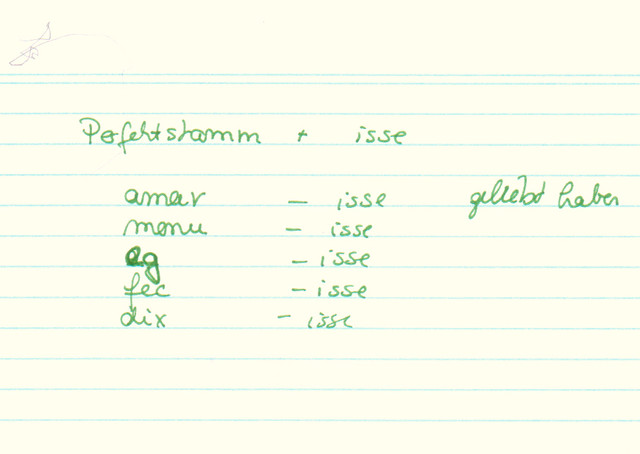 Perfektstamm + isse
amav - isse geliebt haben
monu - isse
eg - isse
fec - isse
dix - isse